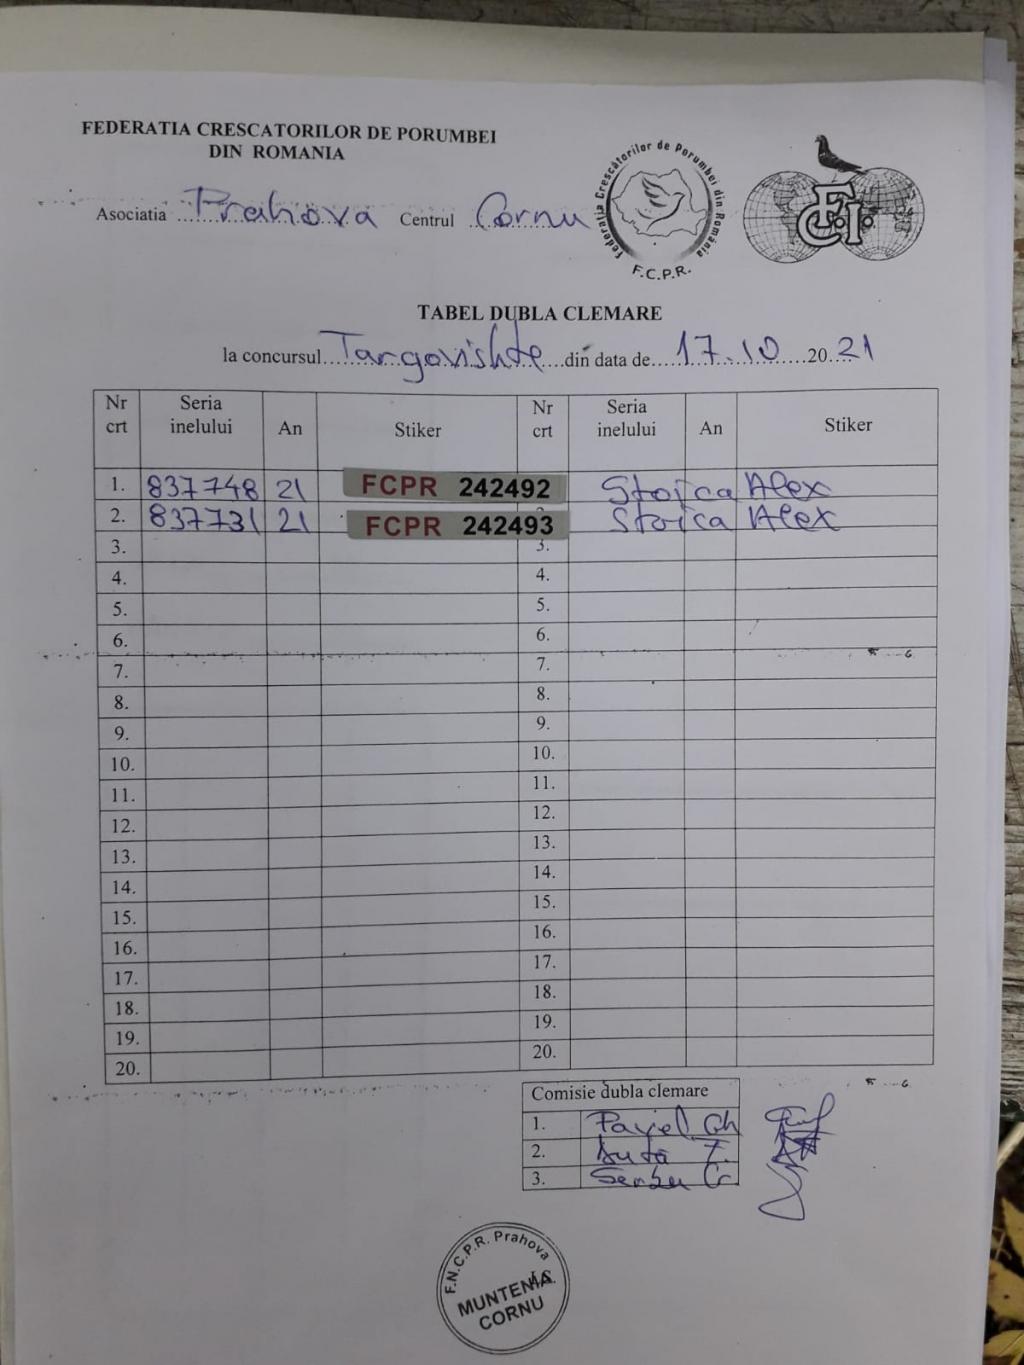 FEDERATIA CRESCATORILOR DE PORUMBEI
DIN ROMANIA
Asociatia Prahova Centrul Cornu
Federatia Crescătorilor de Porumbei din România
F.C.P.R.
F.C.I.
TABEL DUBLA CLEMARE
la concursul Targovishte din data de 17.10 2021
Nr crt Seria inelului An Stiker Nr crt Seria inelului An Stiker
1. 837748 21 FCPR 242492 Stoica Alex
2. 837731 21 FCPR 242493 Stoica Alex
3. 3.
4. 4.
5. 5.
6. 6.
7. 7.
8. 8.
9. 9.
10. 10.
11. 11.
12. 12.
13. 13.
14. 14.
15. 15.
16. 16.
17. 17.
18. 18.
19. 19.
20. 20.
Comisie dubla clemare
1. Pavel Gh
2. Duta F.
3. Serbu C
F.N.C.P.R. Prahova
MUNTENIA
CORNU